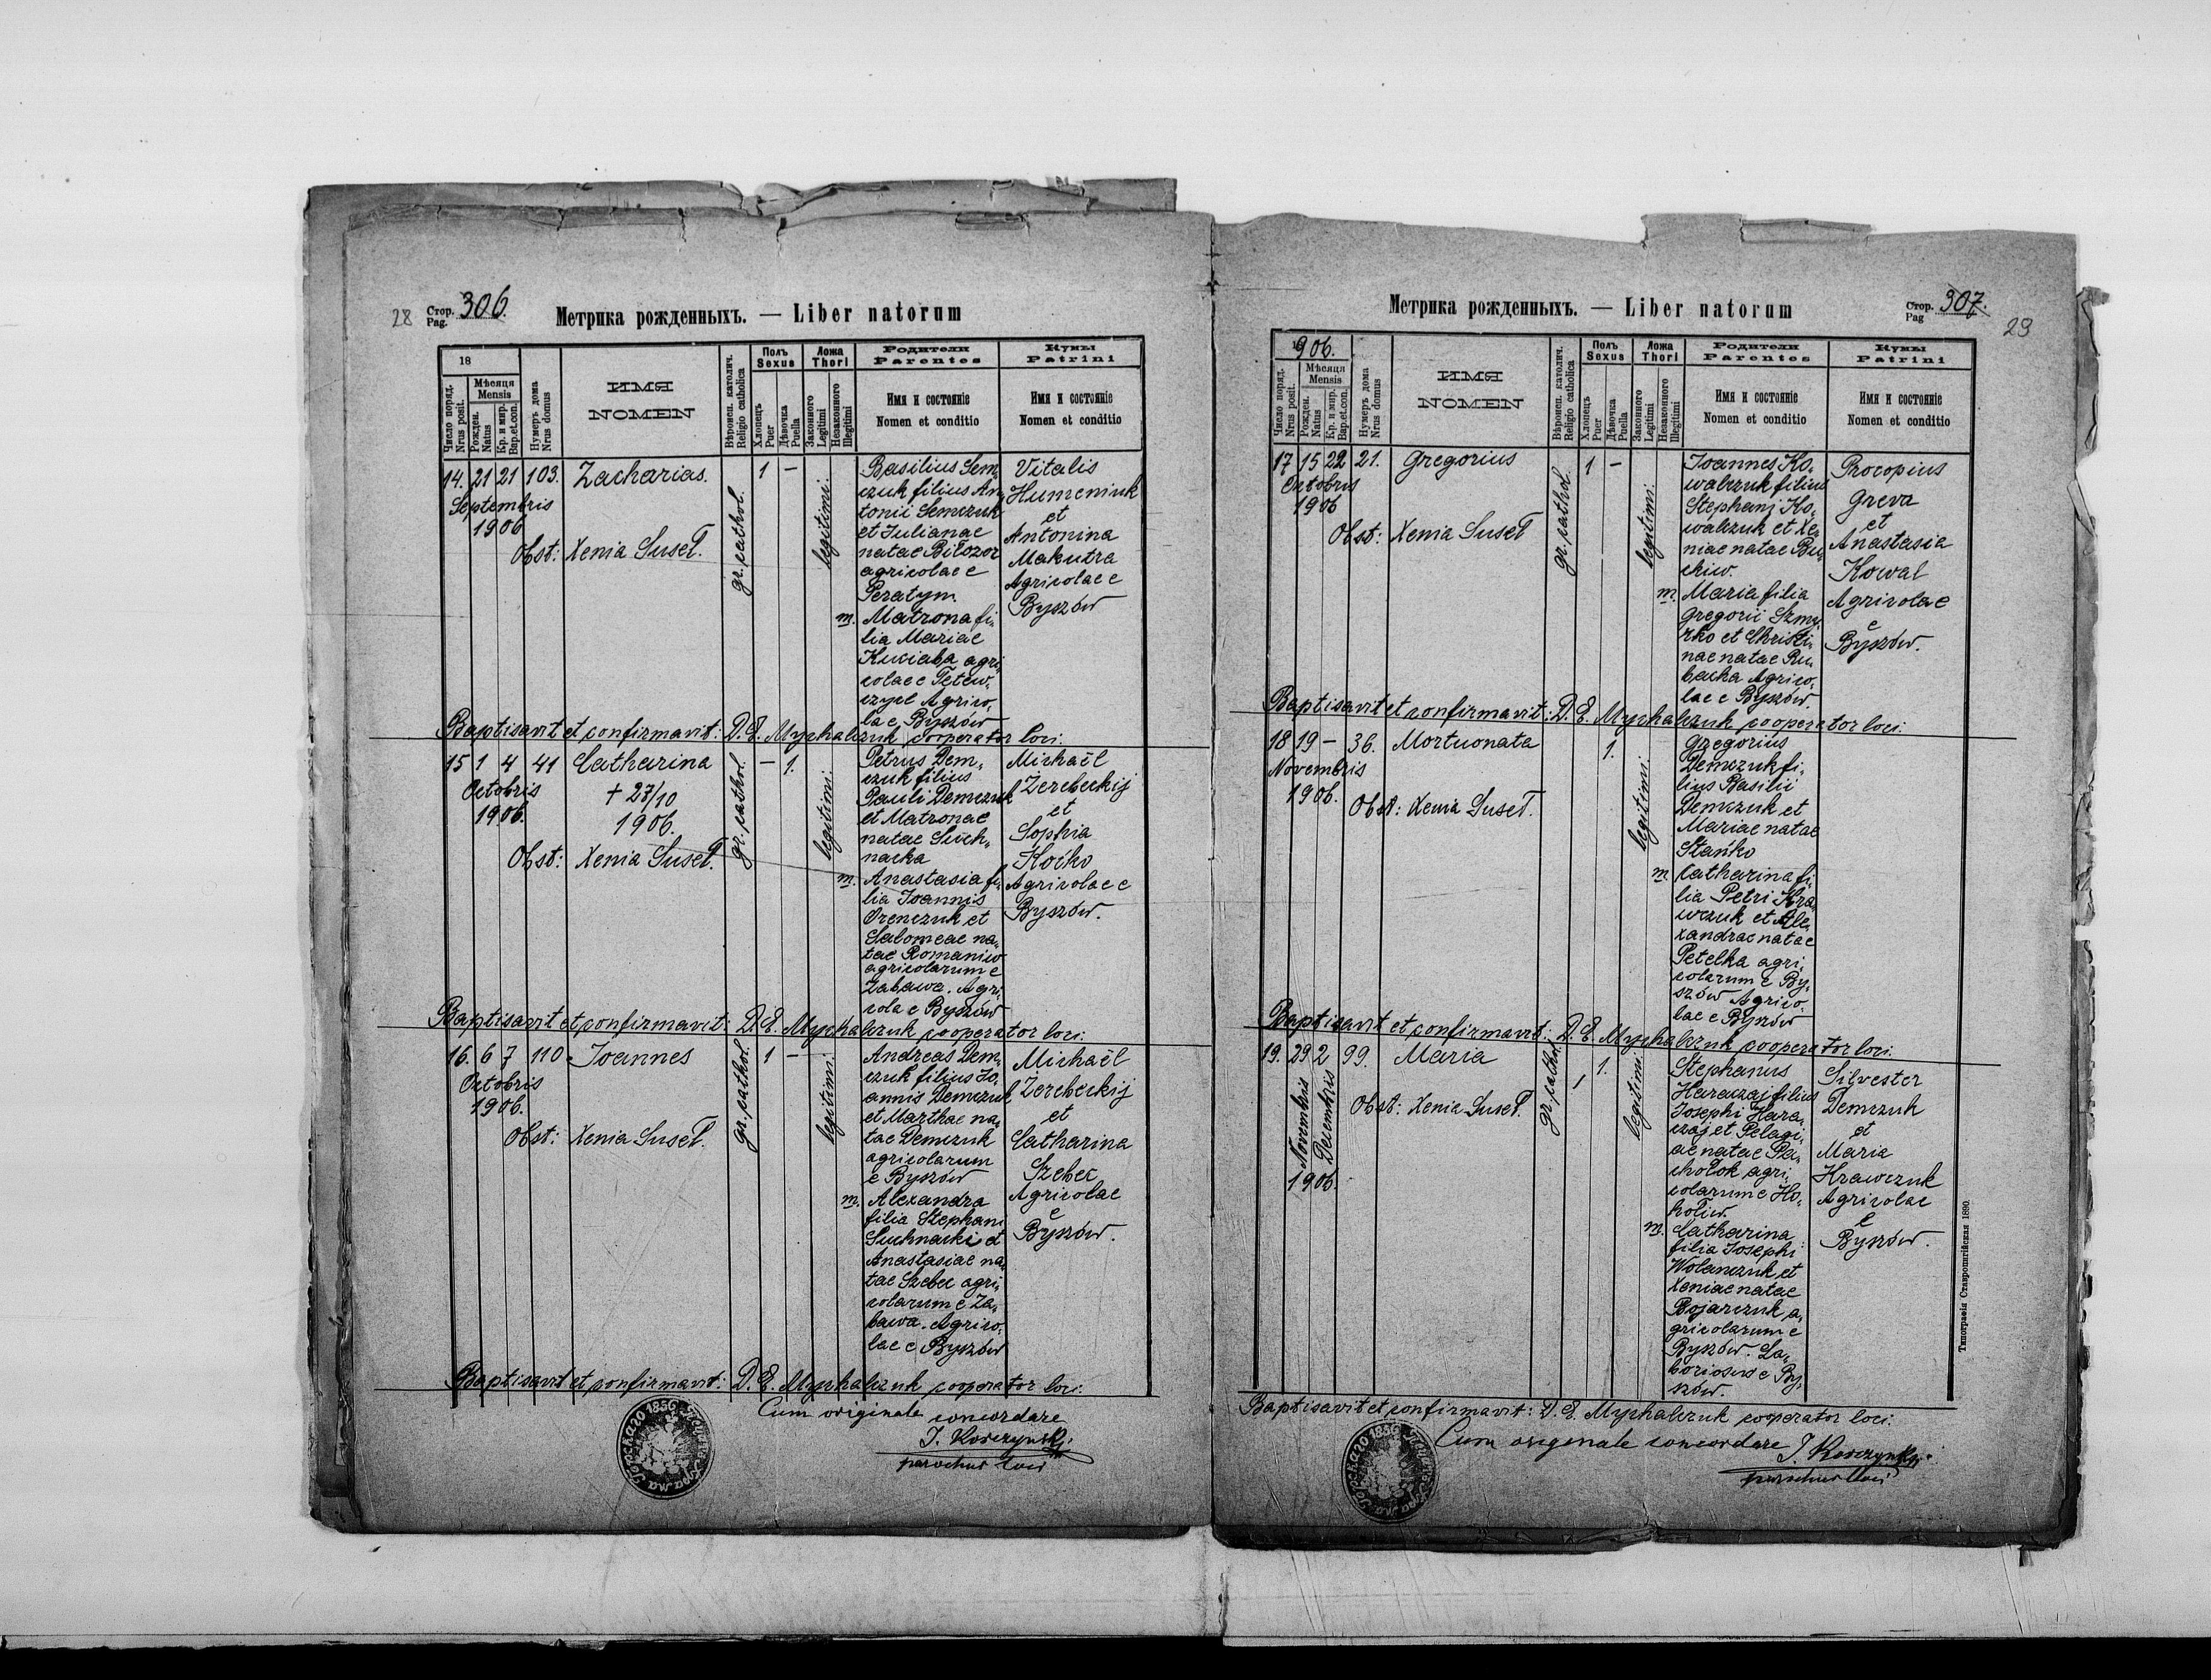 28
Стор.
Pag. 306.
Метрика рожденныхъ. — Liber natorum
18
Число поряд.
Nrus posit.
Мѣсяця
Mensis
Рожден.
Natus
Кр. и мир.
Bap.et.con.
Нумеръ дома
Nrus domus
ИМЯ
NOMEN
Вѣроисп. католич.
Religio catholica
Полъ
Sexus
Хлопецъ
Puer
Дѣвочка
Puella
Ложа
Thori
Законного
Legitimi
Незаконного
Illegitimi
Родители
Parentes
Имя и состояніе
Nomen et conditio
Кумы
Patrini
Имя и состояніе
Nomen et conditio
14. 21 21 103. Zacharias.
Septembris
1906
Obst: Xenia Suseł.
gr. cathol.
1 —
legitimi.
Basilius Sem,
czuk filius An,
tonii Semczuk
et Julianae
natae Biłozor
agricolae e
Peratyn.
m. Matrona fi,
lia Mariae
Kuciaba agri,
colae e Tetew,
czyce Agrico,
lae, Byszów
Vitalis
Humeniuk
et
Antonina
Makutra
Agricolae e
Byszów
Baptisavit et confirmavit: D. E. Mychalczuk cooperator loci.
15 1 4 41 Catharina
Octobris
1906.
+ 27/10
1906.
Obst: Xenia Suseł.
gr. cathol.
— 1.
legitimi.
Petrus Dem,
czuk filius
Pauli Demczuk
et Matronae
natae Such,
nacka
m. Anastasia fi,
lia Joannis
Orenczuk et
Salomeae na,
tae Romaniw
agricolarum e
Zabawa. Agri,
colae Byszów
Michaël
Żerebeckij
et
Sophia
Koćko
Agricolae e
Byszów.
Baptisavit et confirmavit: D. E. Mychalczuk cooperator loci.
16. 6 7 110 Joannes
Octobris
1906.
Obst: Xenia Suseł.
gr. cathol.
1 —
legitimi.
Andreas Dem,
czuk filius Jo,
annis Demczuk
et Marthae na,
tae Demczuk
agricolarum
e Byszów
m. Alexandra
filia Stephani
Suchnacki et
Anastasiae na,
tae Szebec agri,
colarum e Za,
bawa. Agrico,
lae e Byszów
Michaël
Żerebeckij
et
Catharina
Szebec
Agricolae
e
Byszów.
Baptisavit et confirmavit: D. E. Mychalczuk cooperator loci.
Cum originale concordare
J. Korczynskij
parochus loci
Метрика рожденныхъ. — Liber natorum
Стор.
Pag 307.
29
906.
Число поряд.
Nrus posit.
Мѣсяця
Mensis
Рожден.
Natus
Кр. и мир.
Bap.et.con.
Нумеръ дома
Nrus domus
ИМЯ
NOMEN
Вѣроисп. католич.
Religio catholica
Полъ
Sexus
Хлопецъ
Puer
Дѣвочка
Puella
Ложа
Thori
Законного
Legitimi
Незаконного
Illegitimi
Родители
Parentes
Имя и состояніе
Nomen et conditio
Кумы
Patrini
Имя и состояніе
Nomen et conditio
17 15 22 21. Gregorius
Octobris
1906
Obst: Xenia Suseł
gr. cathol.
1 —
legitimi.
Joannes Ko,
walczuk filius
Stephani Ko,
walczuk et Xe,
niae natae Bu,
ckiw.
m. Maria filia
Gregorii Szmy,
rko et Christi,
nae natae Ru,
backa Agrico,
lae e Byszów.
Procopius
Greva
et
Anastasia
Kowal
Agricolae
e
Byszów.
Baptisavit et confirmavit: D. E. Mychalczuk cooperator loci.
18 19 — 36. Mortuonata
Novembris
1906.
Obst: Xenia Suseł.
1.
legitimi.
Gregorius
Demczuk fi,
lius Basilii
Demczuk et
Mariae natae
Stańko
m. Catharina fi,
lia Petri Kra,
wczuk et Ale,
xandrae natae
Petelka agri,
colarum e By,
szów Agrico,
lae e Byszów
Baptisavit et confirmavit: D. E. Mychalczuk cooperator loci.
19. 29 2 99. Maria
Novembris
Decembris
1906.
Obst: Xenia Suseł.
gr. cathol.
1.
legitimi.
Stephanus
Haraczaj filius
Josephi Hara,
czaj et Pelagi,
ae natae Pa,
chołok agri,
colarum e Ho,
holiw.
m. Catharina
filia Josephi
Wolanczuk et
Xeniae natae
Bojarczuk a,
gricolarum e
Byszów. La,
boriosus e By,
szów.
Silvester
Demczuk
et
Maria
Krawczuk
Agricolae
e
Byszów.
Baptisavit et confirmavit: D. E. Mychalczuk cooperator loci.
Cum originale concordare J. Korczynskij
parochus loci
Типографія Ставропигійская 1890.